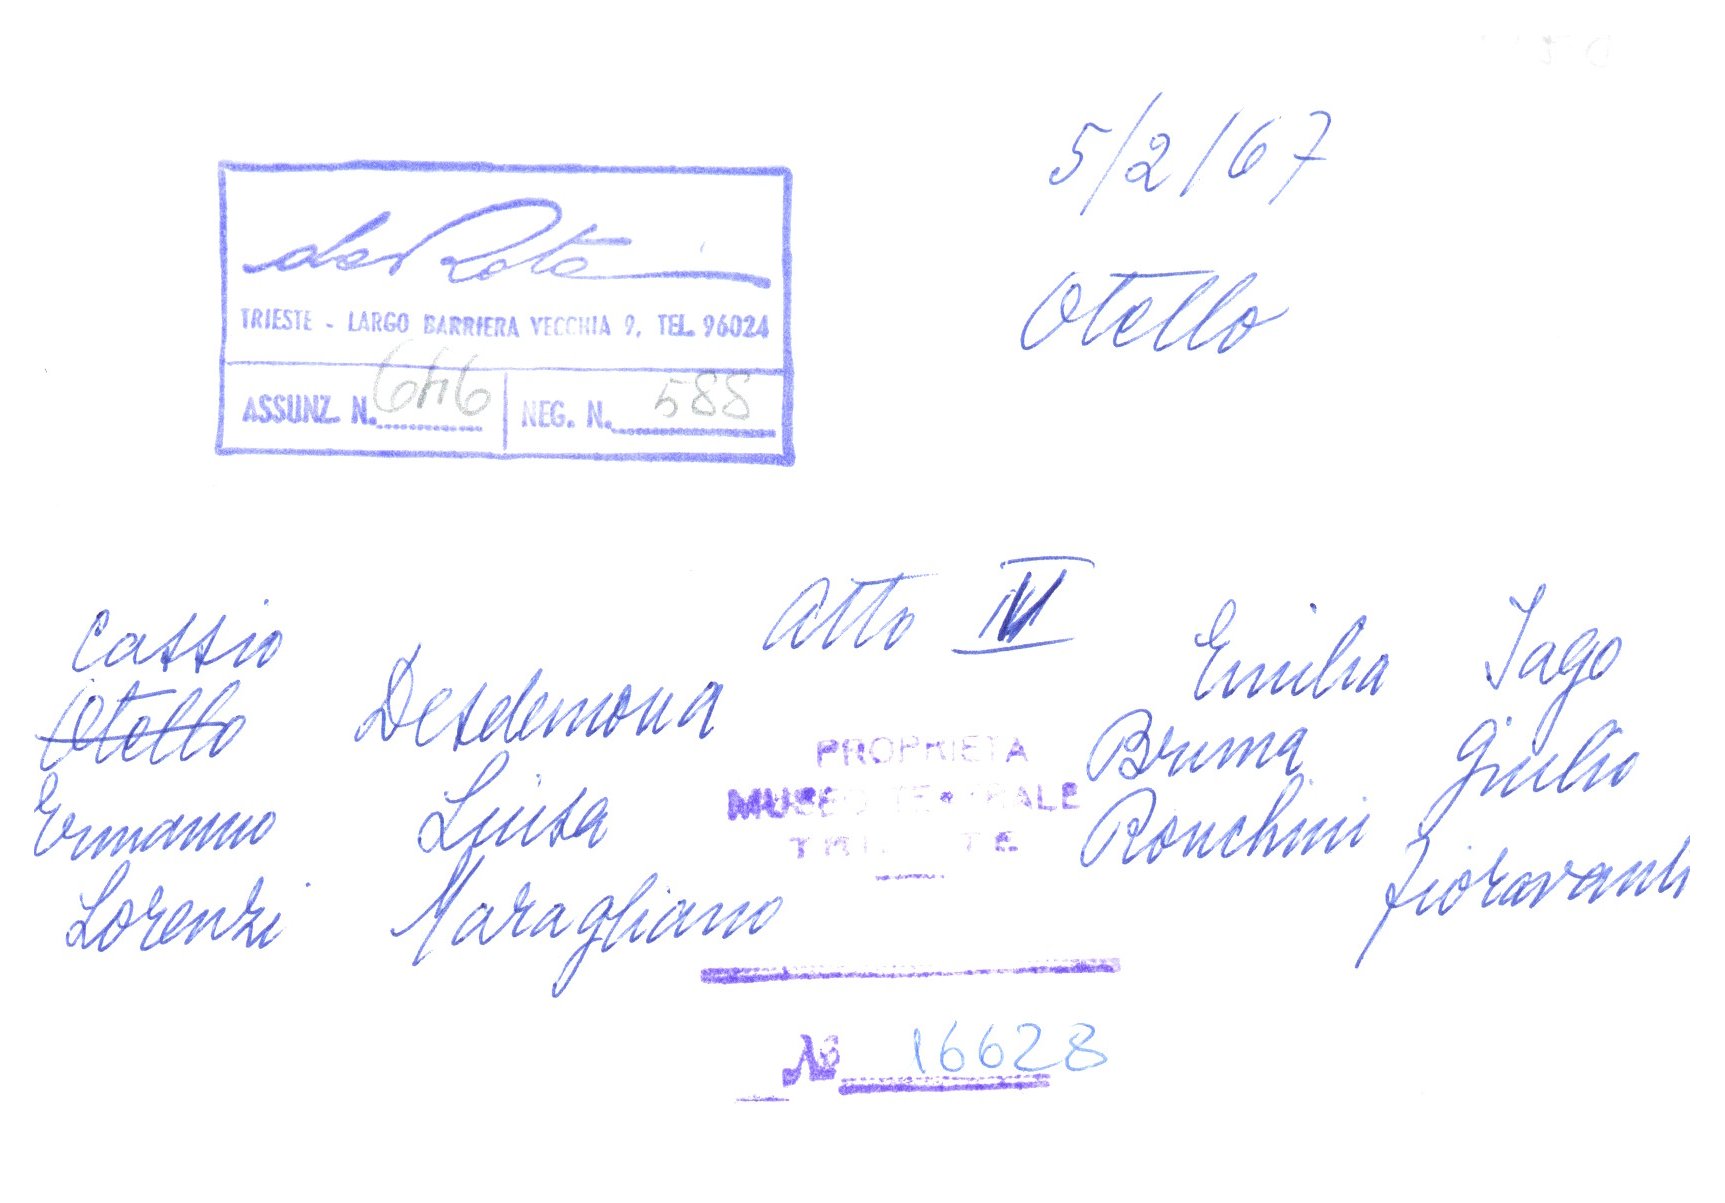 5/2/67
de Rota
TRIESTE - LARGO BARRIERA VECCHIA 9, TEL. 96024
ASSUNZ. N. 646
NEG. N. 588
Otello
Atto IV
Cassio
Otello
Ermanno
Lorenzi
Desdemona
Luisa
Maragliano
Emilia
Bruna
Ronchini
Iago
Giulio
Fioravanti
PROPRIETA
MUSEO TEATRALE
TRIESTE
No 16628